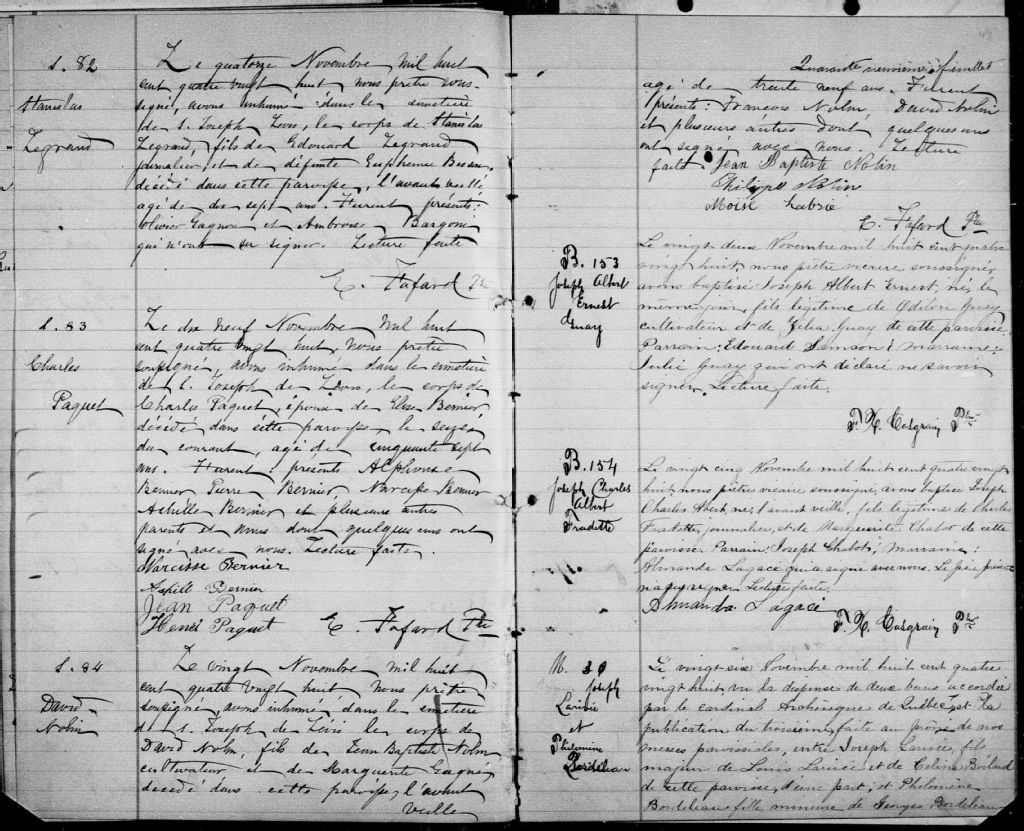 S. 82
Stanislas
Legrand
Le quatorze Novembre mil huit
cent quatre vingt huit nous prêtre sous-
signé, avons inhumé dans le cimetière
de S. Joseph Levis, le corps de Stanislas
Legrand, fils de Edouard Legrand
journalier, et de défunte Euphemie
décédé dans cette paroisse, l'avant veille
agé de dix sept ans. Furent présents:
Olivier Gagnon et Ambroise Bargone
qui n'ont su signer. Lecture faite
E. Fafard Ptre
S. 83
Charles
Paquet
Le dix neuf Novembre mil huit
cent quatre vingt huit, nous prêtre
soussigné, avons inhumé dans le cimetière
de S. Joseph de Levis, le corps de
Charles Paquet, époux de Elise Bernier,
décédé dans cette paroisse le seize
du courant, agé de cinquante sept
ans. Furent présents Alphonse
Bernier Pierre Bernier, Narcisse Bernier
Achille Bernier et plusieurs autres
parents et amis dont quelques uns ont
signé avec nous. Lecture faite.
Narcisse Bernier
Achill Bernier
Jean Paquet
Henri Paquet E. Fafard Ptre
S. 84
David
Nolin
Le vingt Novembre mil huit
cent quatre vingt huit, nous prêtre
soussigné, avons inhumé dans le cimetière
d S. Joseph de Lévis le corps de
David Nolin, fils de Jean Baptiste Nolin
cultivateur et de Marguerite Gagné,
décédé dans cette paroisse, l'avant
veille
Quarante neuvième feuillet
agé de trente neuf ans. Furent
présents: Francois Nolin, David Nolin
et plusieurs autres dont quelques uns
ont signé avec nous. Lecture
faite. Jean Baptiste Nolin
Philippe Nolin
Moïse Labrie
E. Fafard Ptre
B. 153
Joseph Albert
Ernest
Guay
Le vingt deux Novembre mil huit cent quatre
vingt huit, nous prêtre vicaire soussigné,
avons baptisé Joseph Albert Ernest, né le
même jour, fils légitime de Odilon Guay
cultivateur et de Zelia Guay de cette paroisse.
Parrain: Edouard Samson; marraine:
Julie Guay qui ont déclaré ne savoir
signer. Lecture faite.
F. X. Casgrain Ptre
B. 154
Joseph Charles
Albert
Fradette
Le vingt cinq Novembre mil huit cent quatre vingt
huit nous prêtre vicaire soussigné, avons baptisé Joseph
Charles Albert, né l'avant veille, fils légitime de Charles
Fradette, journalier, et de Marguerite Chabot de cette
paroisse. Parrain: Joseph Chabot; marraine:
Almanda Lagacé qui a signé avec nous. Le père présent
n'a pu signer. Lecture faite.
Amanda Lagacé
F. X. Casgrain Ptre
M. 30
Joseph
Larivée
et
Philomine
Bordeleau
Le vingt six Novembre mil huit cent quatre
vingt huit, vu la dispense de deux bans accordée
par le cardinal Archévêque de Québec, et la
publication du troisième, faite au prône de nos
messes paroissiales, entre Joseph Larivée, fils
majeur de Louis Larivée et de Celina Boiland
de cette paroisse, d'une part; et Philomène
Bordeleau fille mineure de Georges Bordeleau